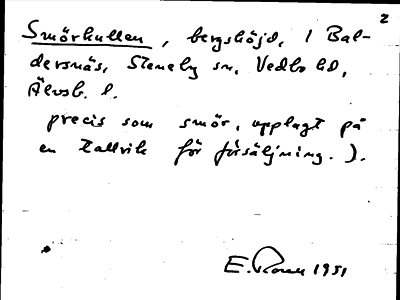 2
Smörkullen, bergshöjd, / Bal-
dersnäs, Steneby sn, Vedbo hd,
Älvsb. l.
precis som smör, upplagt på
en tallrik för försäljning.).
E. 1951